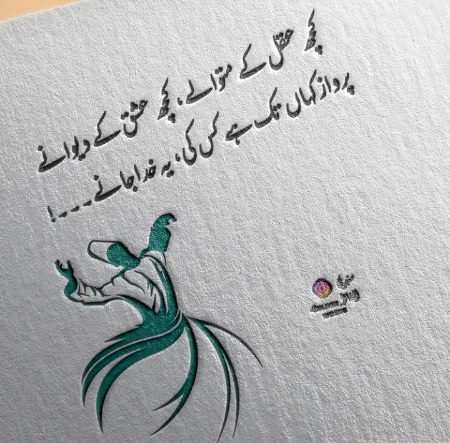 کچھ عقل کے متوالے، کچھ عشق کے دیوانے
پرواز کہاں تک ہے کس کی، یہ خدا جانے۔۔۔!